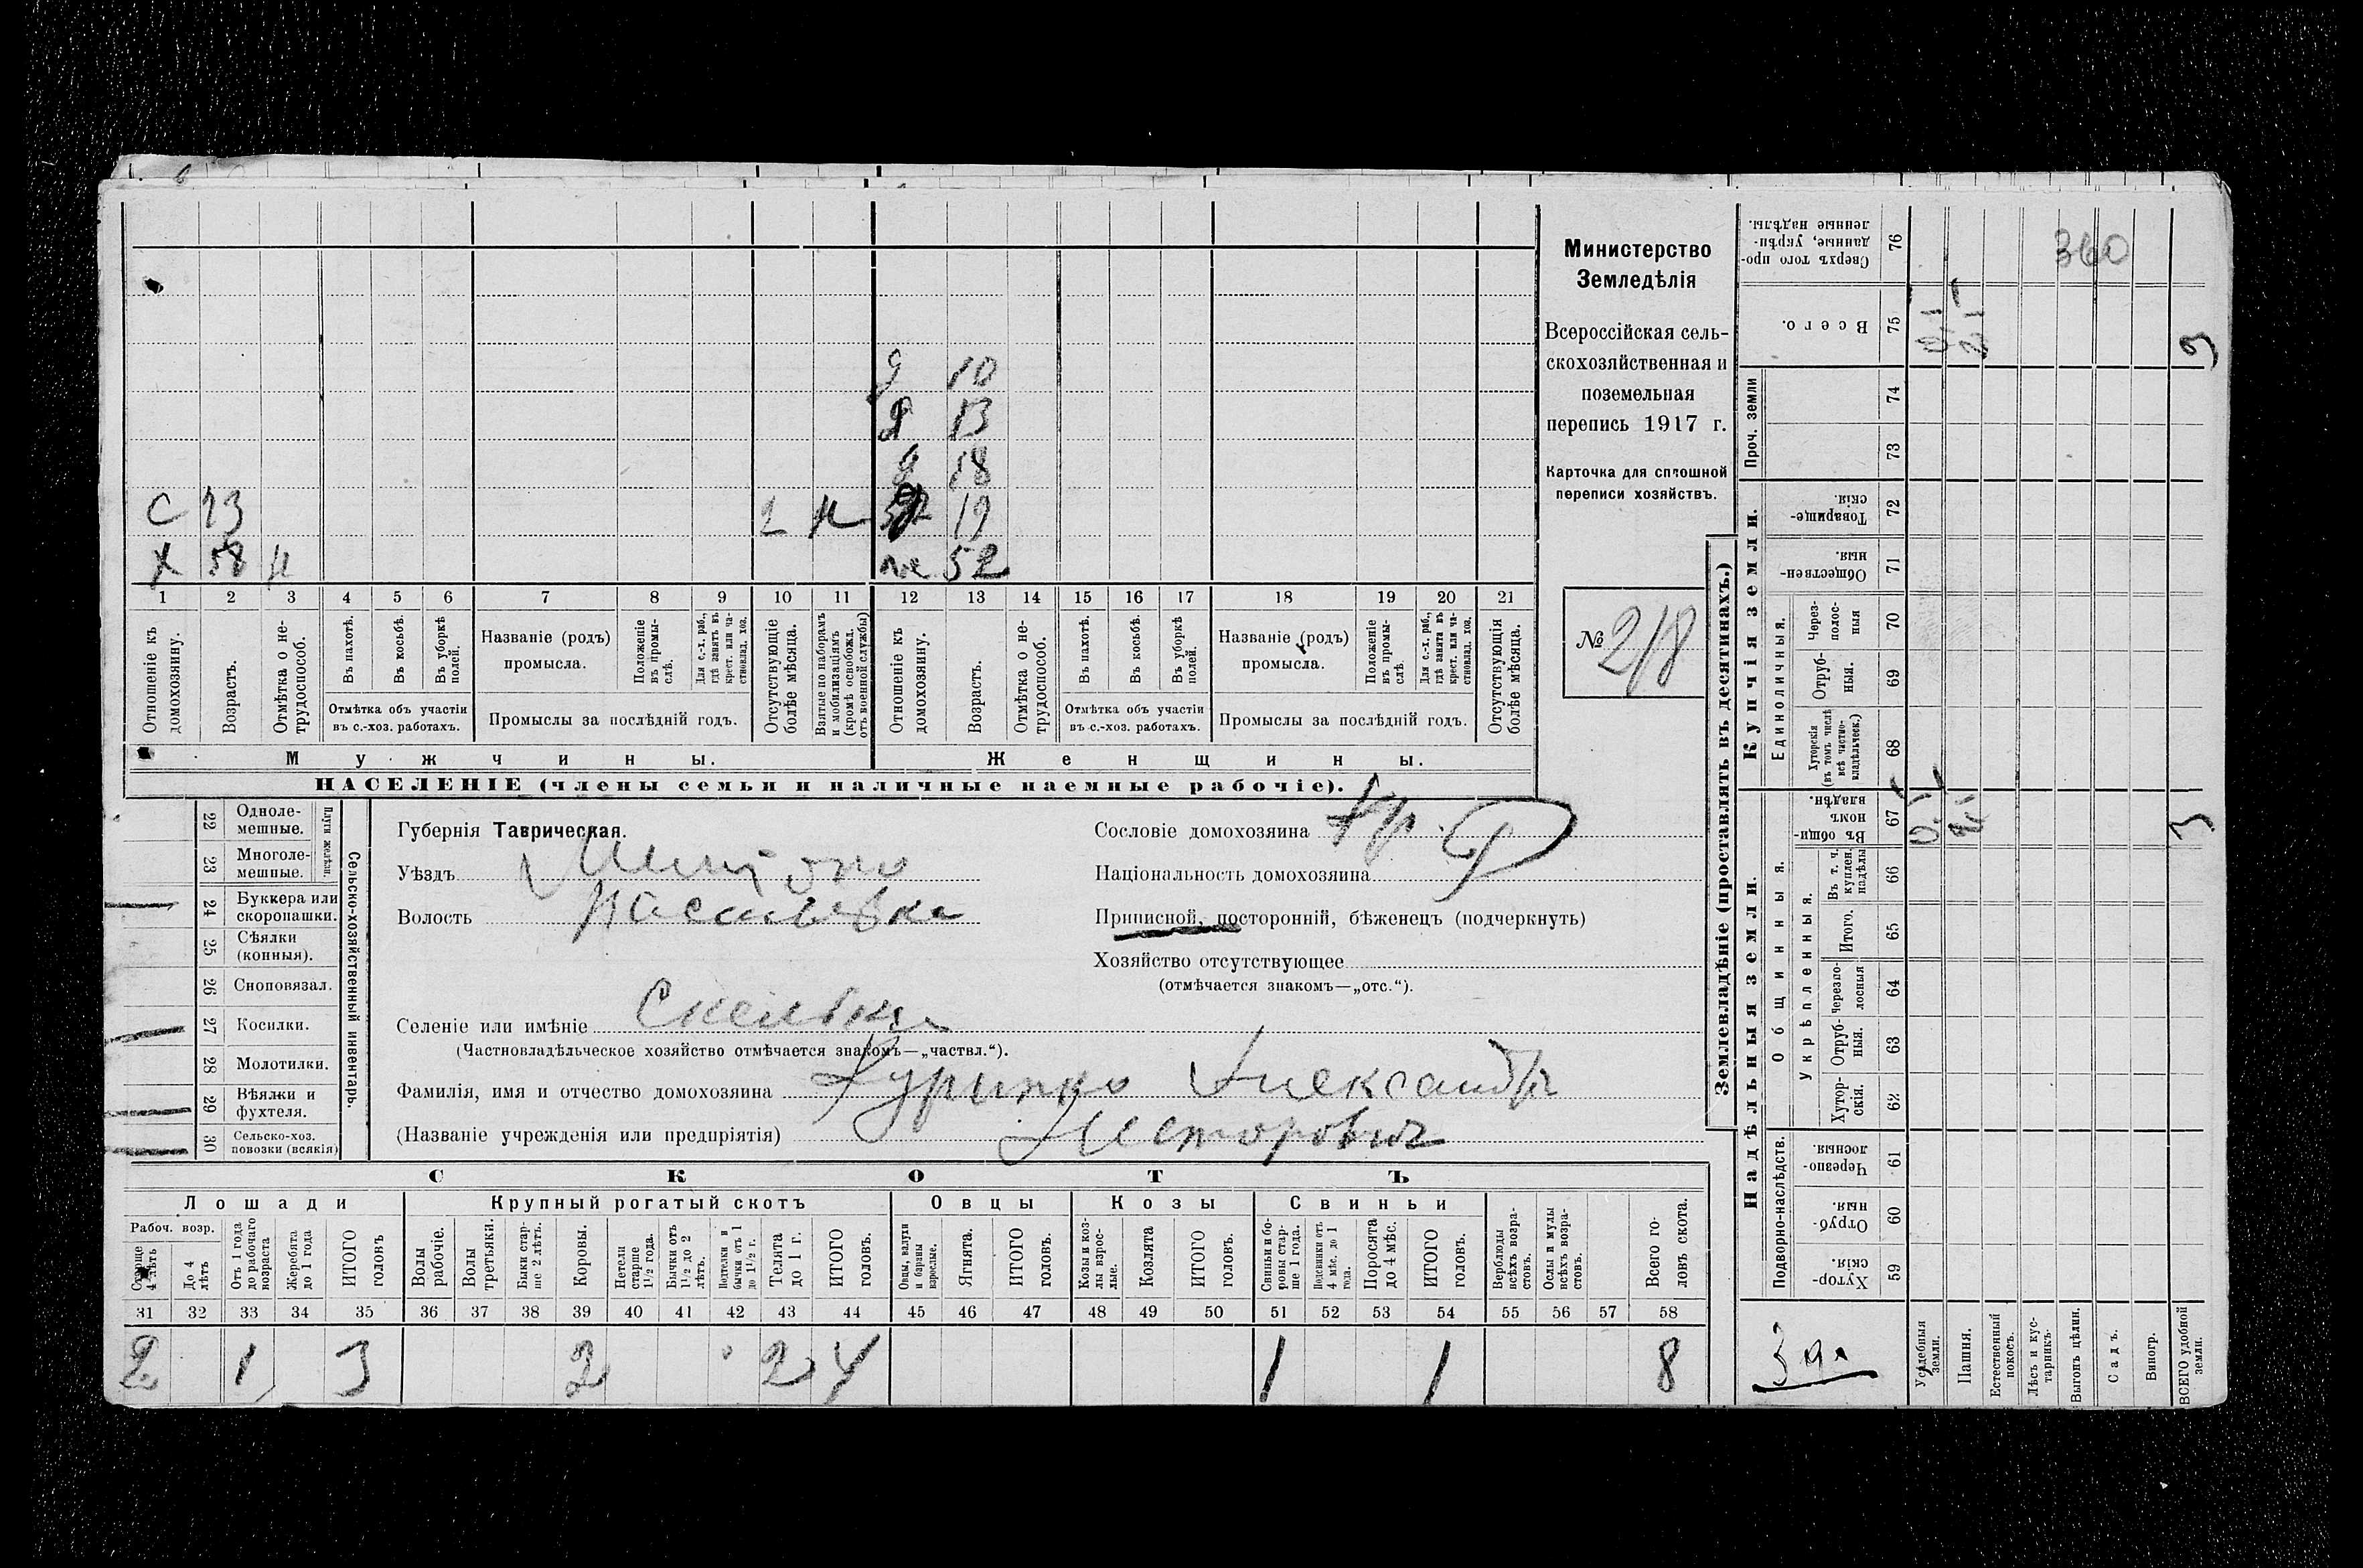 360
Министерство
Земледѣлія
Всероссійская сель-
скохозяйственная и
поземельная
перепись 1917 г.
Карточка для сплошной
переписи хозяйствъ.
№ 218
д 10
д 13
д 18
19
С 23 2
х 58 н 52
1 2 3 4 5 6 7 8 9 10 11 12 13 14 15 16 17 18 19 20 21
Отношеніе къ домохозяину.
Возрастъ.
Отмѣтка о не-трудоспособ.
Въ пахотѣ.
Въ косьбѣ.
Въ уборкѣ полей.
Отмѣтка объ участіи
въ с.-хоз. работахъ.
Названіе (родъ)
промысла.
Положеніе въ промы-слѣ.
Для с.-х. раб., гдѣ занятъ въ крест. или ча-стновлад. хоз.
Промыслы за послѣдній годъ.
Отсутствующіе болѣе мѣсяца.
Взятые по наборамъ и мобилизаціямъ (кромѣ освобожд. отъ военной службы)
Отношеніе къ домохозяину.
Возрастъ.
Отмѣтка о не-трудоспособ.
Въ пахотѣ.
Въ косьбѣ.
Въ уборкѣ полей.
Отмѣтка объ участіи
въ с.-хоз. работахъ.
Названіе (родъ)
промысла.
Положеніе въ промы-слѣ.
Для с.-х. раб., гдѣ занята въ крест. или ча-стновлад. хоз.
Промыслы за послѣдній годъ.
Отсутствующія болѣе мѣсяца.
Мужчины. Женщины.
НАСЕЛЕНІЕ (члены семьи и наличные наемные рабочіе).
Сельско-хозяйственный инвентарь.
Плуги желѣзн.
22 Одноле-мешные.
23 Многоле-мешные.
24 Буккера или скоропашки.
25 Сѣялки (конныя).
26 Сноповязал.
27 Косилки.
28 Молотилки.
29 Вѣялки и фухтеля.
30 Сельско-хоз. повозки (всякія)
Губернія Таврическая.
Уѣздъ
Волость Васильевка
Селеніе или имѣніе Скельки
(Частновладѣльческое хозяйство отмѣчается знакомъ—„частвл.“).
Фамилія, имя и отчество домохозяина Курипко Александръ
(Названіе учрежденія или предпріятія) Несторовичъ
Сословіе домохозяина кр.
Національность домохозяина
Приписной, посторонній, бѣженецъ (подчеркнуть)
Хозяйство отсутствующее
(отмѣчается знакомъ—„отс.“).
СКОТЪ
Лошади Крупный рогатый скотъ Овцы Козы Свиньи
Рабоч. возр.
Старше 4 лѣтъ
До 4 лѣтъ
Отъ 1 года до рабочаго возраста
Жеребята до 1 года
ИТОГО головъ
Волы рабочіе.
Волы третьяки.
Быки стар-ше 2 лѣтъ.
Коровы.
Нетели старше 1½ года.
Бычки отъ 1½ до 2 лѣтъ.
Подтелки и бычки отъ 1 до 1½ г.
Телята до 1 г.
ИТОГО головъ.
Овцы, валухи и бараны взрослые.
Ягнята.
ИТОГО головъ.
Козы и коз-лы взрос-лые.
Козлята
ИТОГО головъ.
Свиньи и бо-ровы стар-ше 1 года.
Подсвинки отъ 4 мѣс. до 1 года.
Поросята до 4 мѣс.
ИТОГО головъ.
Верблюды всѣхъ возра-стовъ.
Ослы и мулы всѣхъ возра-стовъ.
Всего го-ловъ скота.
31 32 33 34 35 36 37 38 39 40 41 42 43 44 45 46 47 48 49 50 51 52 53 54 55 56 57 58
2 1 3 2 2 4 1 1 8
Землевладѣніе (проставлять въ десятинахъ.)
Надѣльныя земли. Купчія земли.
Подворно-наслѣдств.
Общинныя.
Укрѣпленныя.
Единоличныя.
Проч. земли
Сверхъ того про-данные, укрѣп-ленные надѣлы. 76
Всего. 75
74
73
Товарище-скія. 72
Обществен-ныя. 71
Через-полос-ныя 70
Отруб-ныя. 69
Хуторскія (въ томъ числѣ всѣ частно-владѣльческ.) 68
Въ общин-номъ владѣн. 67
Въ т. ч. куплен. надѣлы 66
Итого. 65
Черезпо-лосныя 64
Отруб-ныя. 63
Хутор-скія. 62
Черезпо-лосныя. 61
Отруб-ныя. 60
Хутор-скія. 59
Усадебныя земли.
Пашня.
Естественный покосъ.
Лѣсъ и кус-тарникъ.
Выгонъ цѣлин.
Садъ.
Виногр.
ВСЕГО удобной земли.
3
3